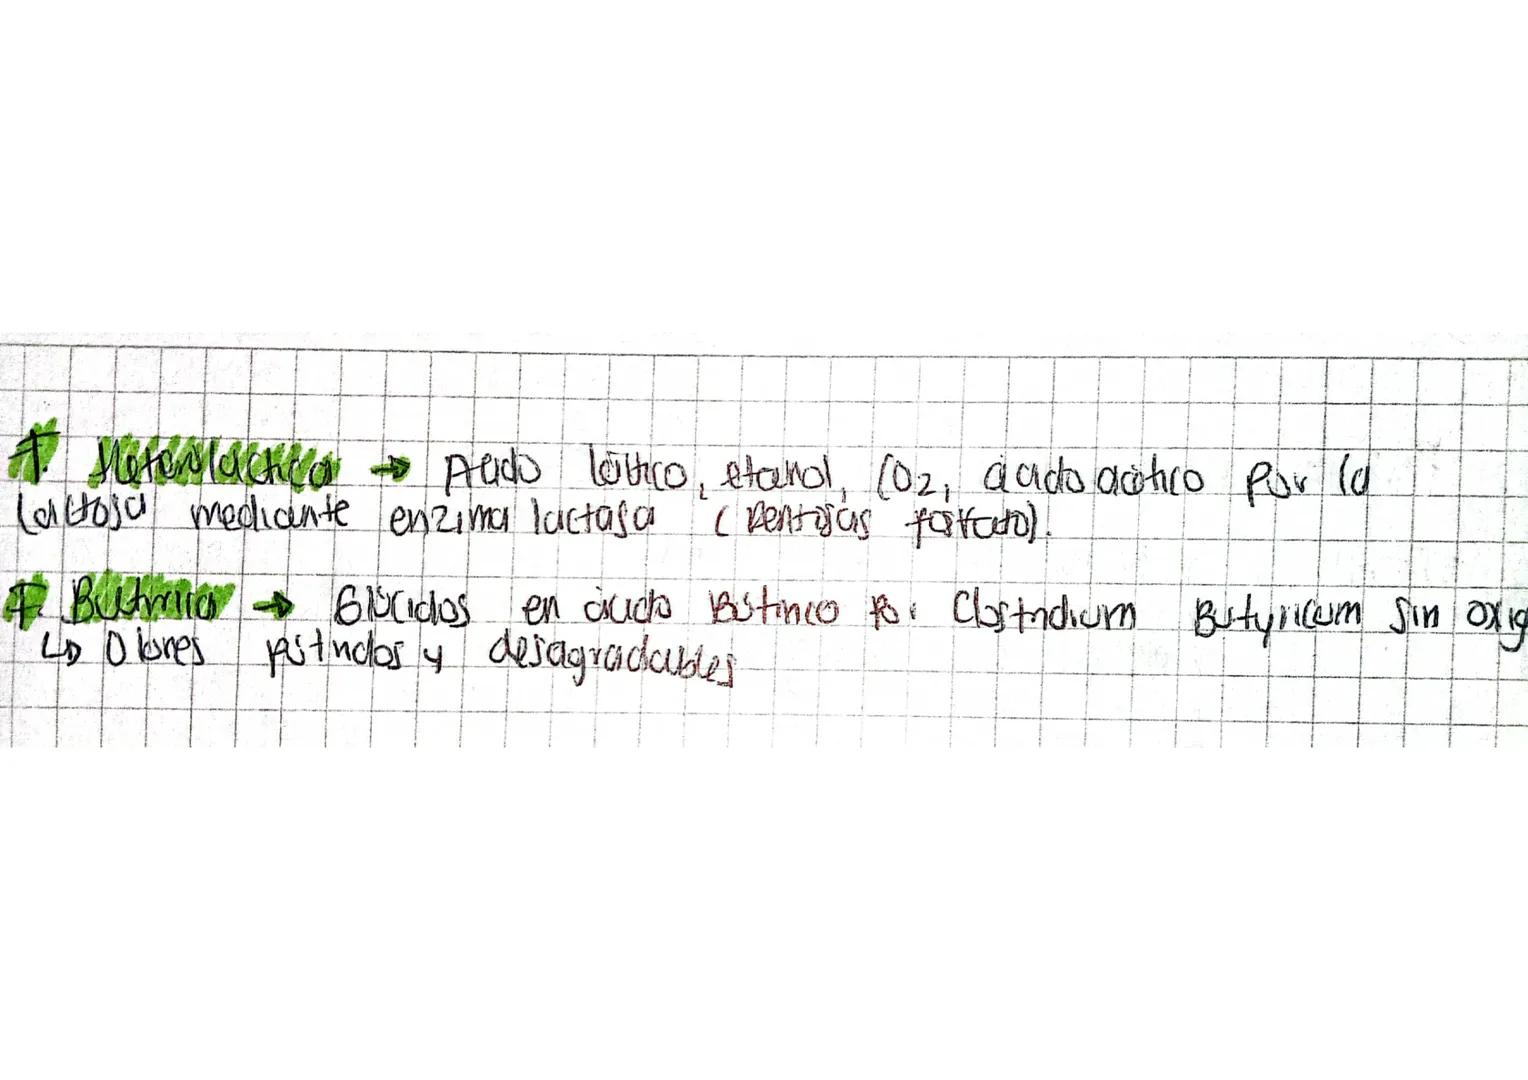 F. Heteroláctica → Ácido láctico, etanol, CO2, ácido acético por la
lactosa mediante enzima lactasa (Pentosas fosfato).
F. Butírica → Glúcidos en ácido Butírico por Clostridium Butyricum sin oxig
↳ Olores pútridos y desagradables